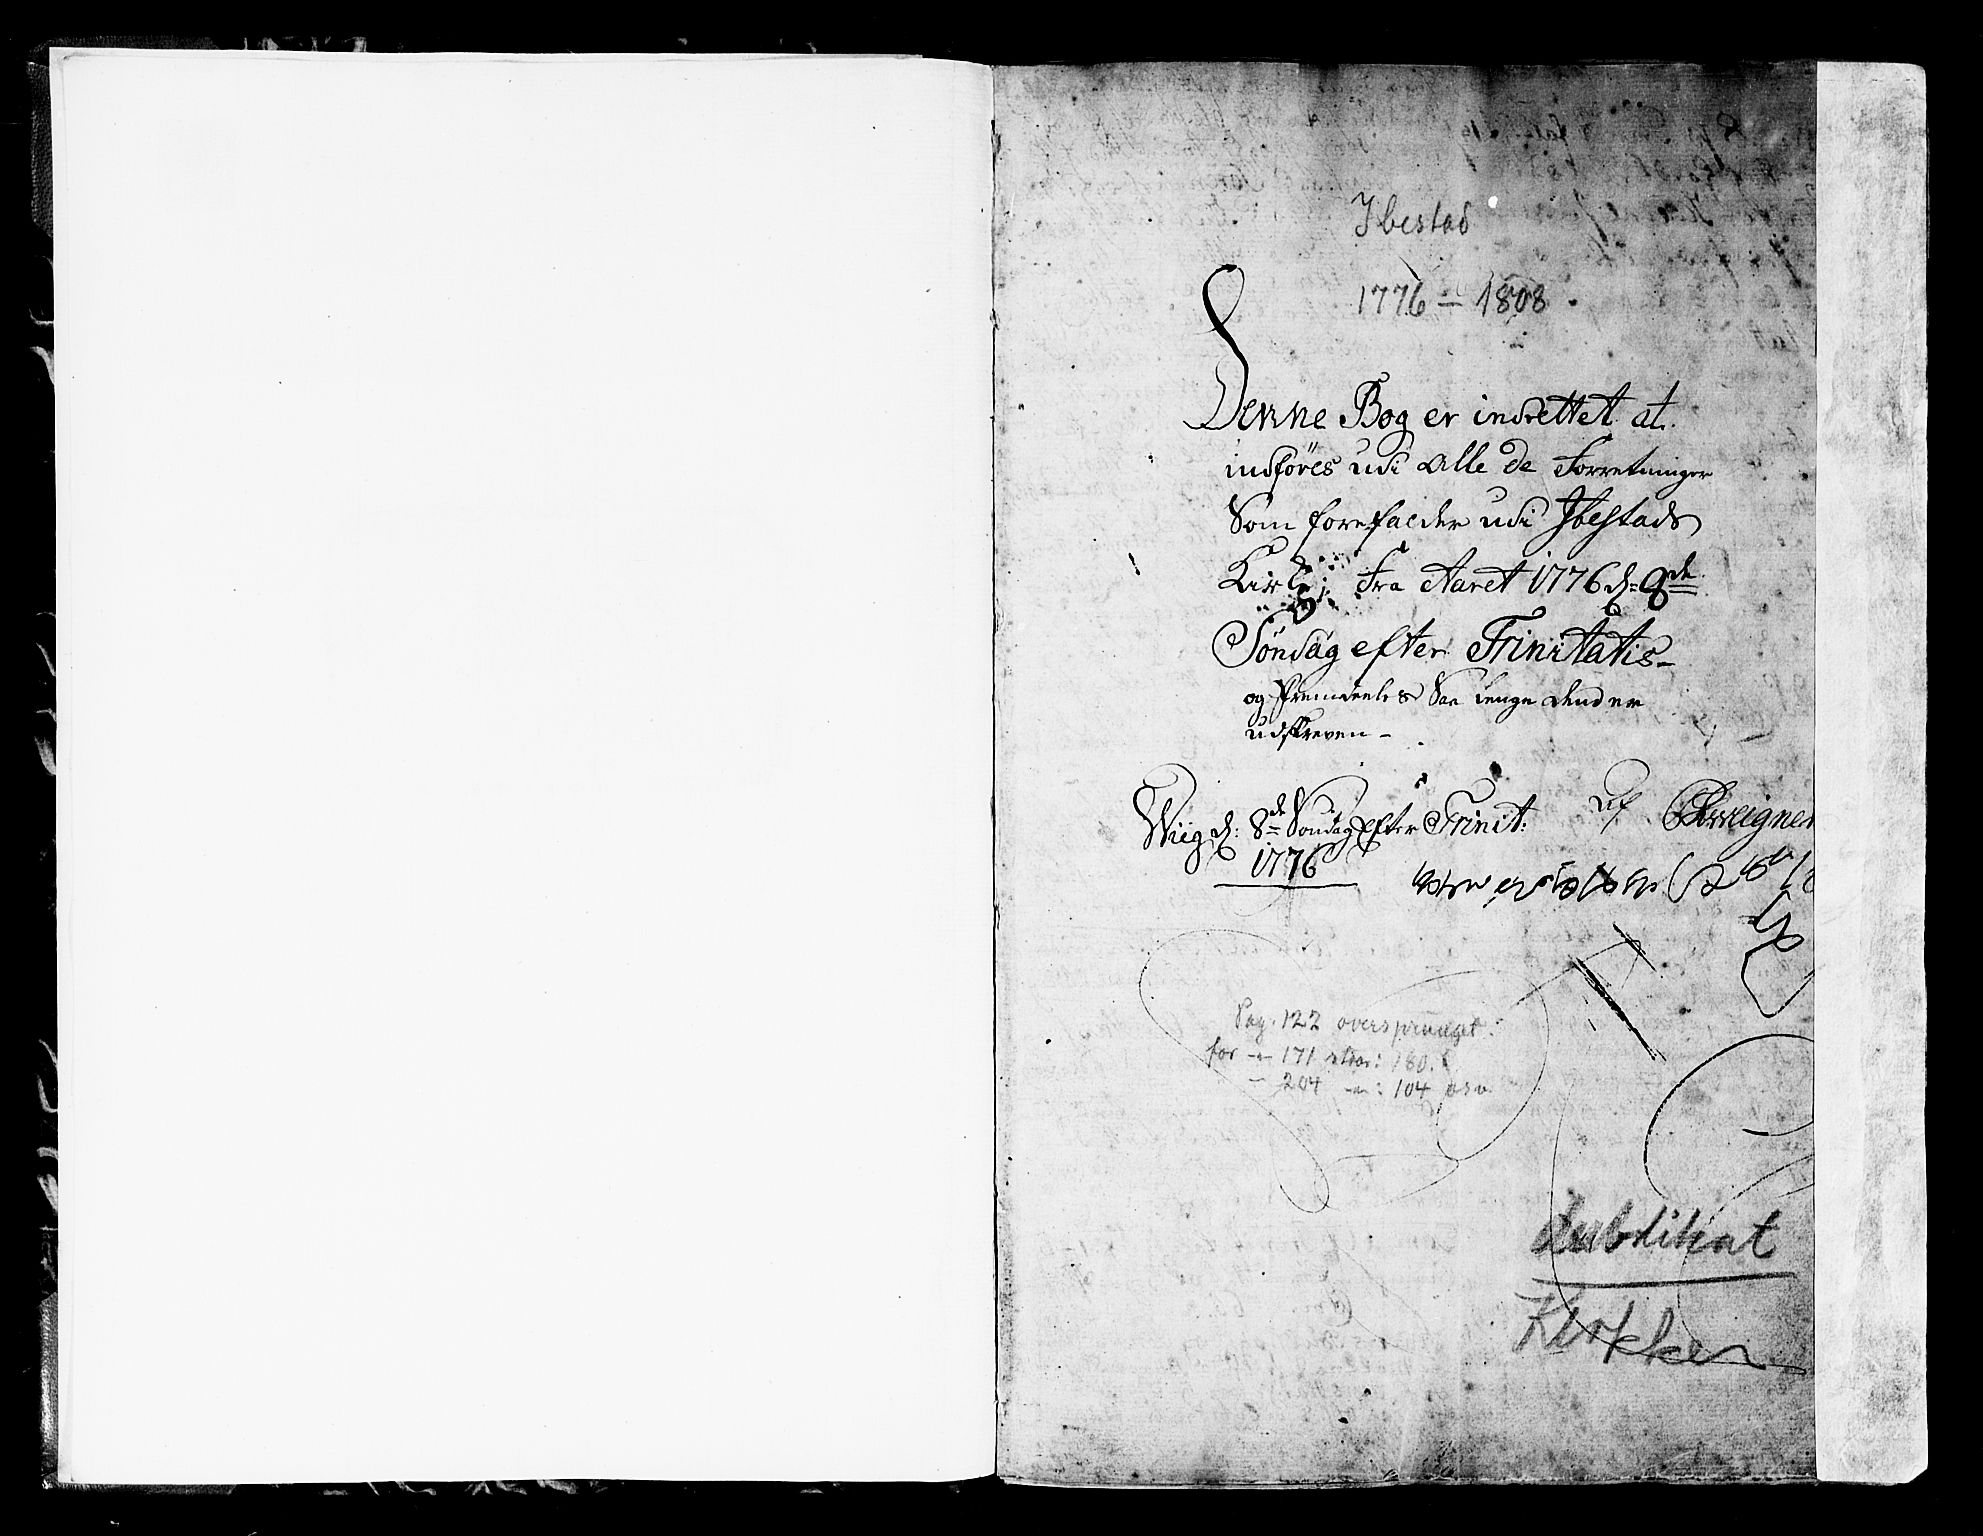 Ibestad
1776 – 1808.
Denne Bog er indrettet at
indføres udi alle de Forretninger
Som forefalder udi Ibestads
Kirke; Fra Aaret 1776 d: 8de
Søndag efter Trinitatis –
og fremdeeles Saa lenge dend er
udskreven –
Wiig d: 8de Søndag Efter Trinit:
1776
af
Pag. 122 overspringet.
for –"– 171 staar: 180.
– 204 –"–: 104 osv.
dublikat
Klokker